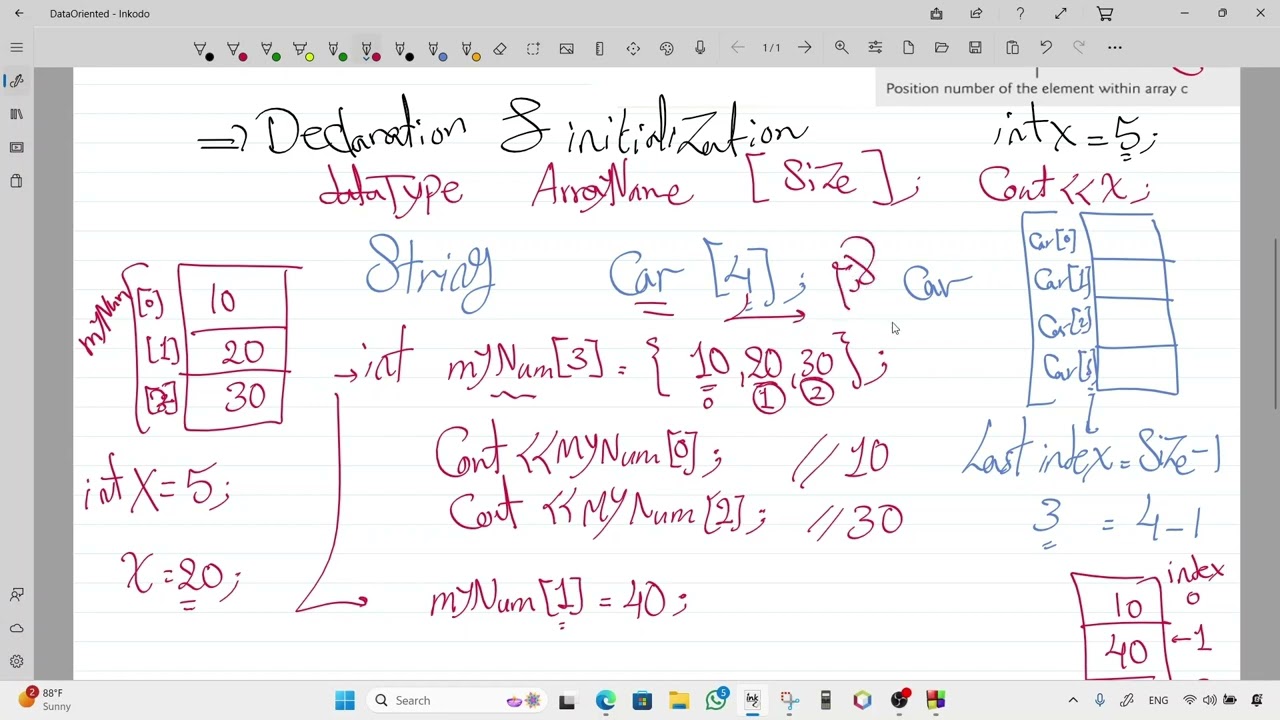 DataOriented - Inkodo
1/1
Position number of the element within array c
⇒ Declaration & initialization
int x = 5;
dataType ArrayName [Size];
Cout << x;
String Car [4];
Car
Car[0]
Car[1]
Car[2]
Car[3]
myNum
[0] 10
[1] 20
[2] 30
→ int myNum[3] = { 10, 20, 30 };
0 1 2
Cout << MyNum[0]; // 10
Cout << MyNum[2]; // 30
Last index = Size - 1
3 = 4 - 1
int X = 5;
X = 20;
myNum[1] = 40;
index
10 0
40 ← 1
2
88°F
Sunny
Search
5
ENG